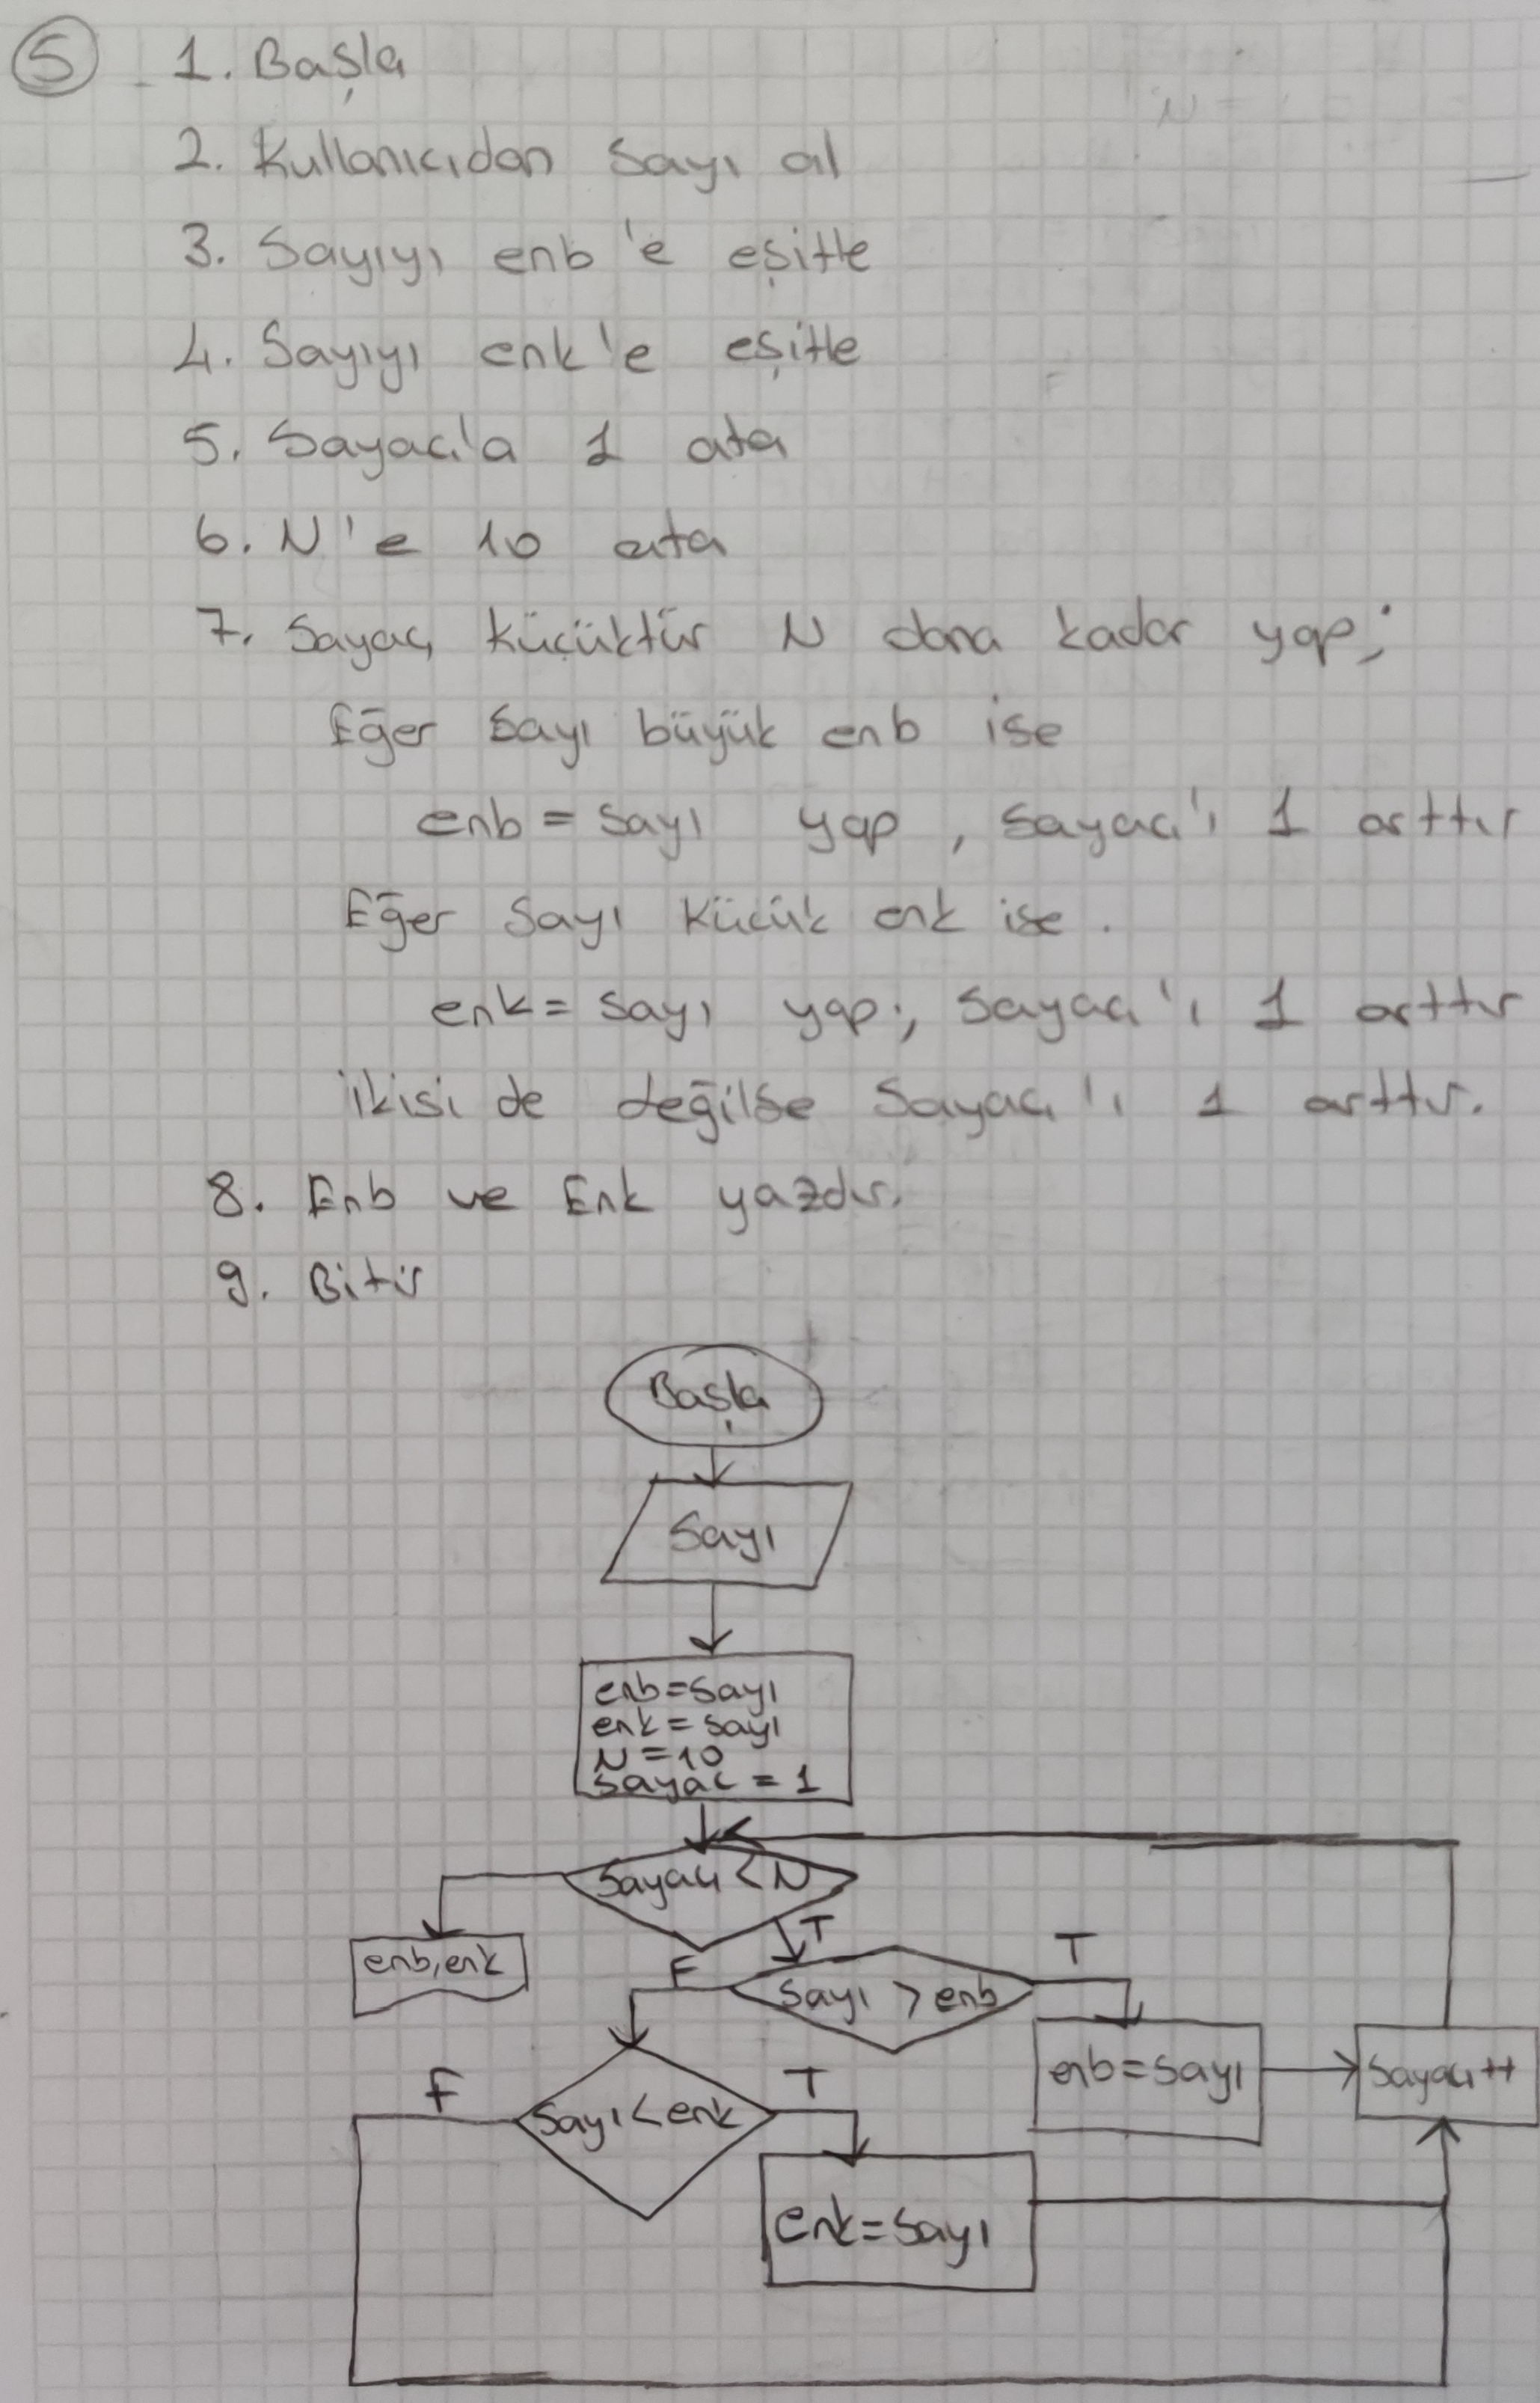 5
1. Başla
2. Kullanıcıdan Sayı al
3. Sayıyı enb'e eşitle
4. Sayıyı enk'e eşitle
5. Sayaç'a 1 ata
6. N'e 10 ata
7. Sayaç küçüktür N dana kadar yap;
Eğer Sayı büyük enb ise
enb = sayı yap, sayaç'ı 1 arttır
Eğer Sayı küçük enk ise.
enk = sayı yap; sayaç'ı 1 arttır
ikisi de değilse Sayaç'ı 1 arttır.
8. Enb ve Enk yazdır.
9. Bitir
Başla
Sayı
enb=sayı
enk=sayı
N=10
sayac = 1
Sayaç < N
T
enb,enk
F
Sayı > enb
T
enb=sayı
Sayaç++
F
Sayı<enk
T
enk=sayı